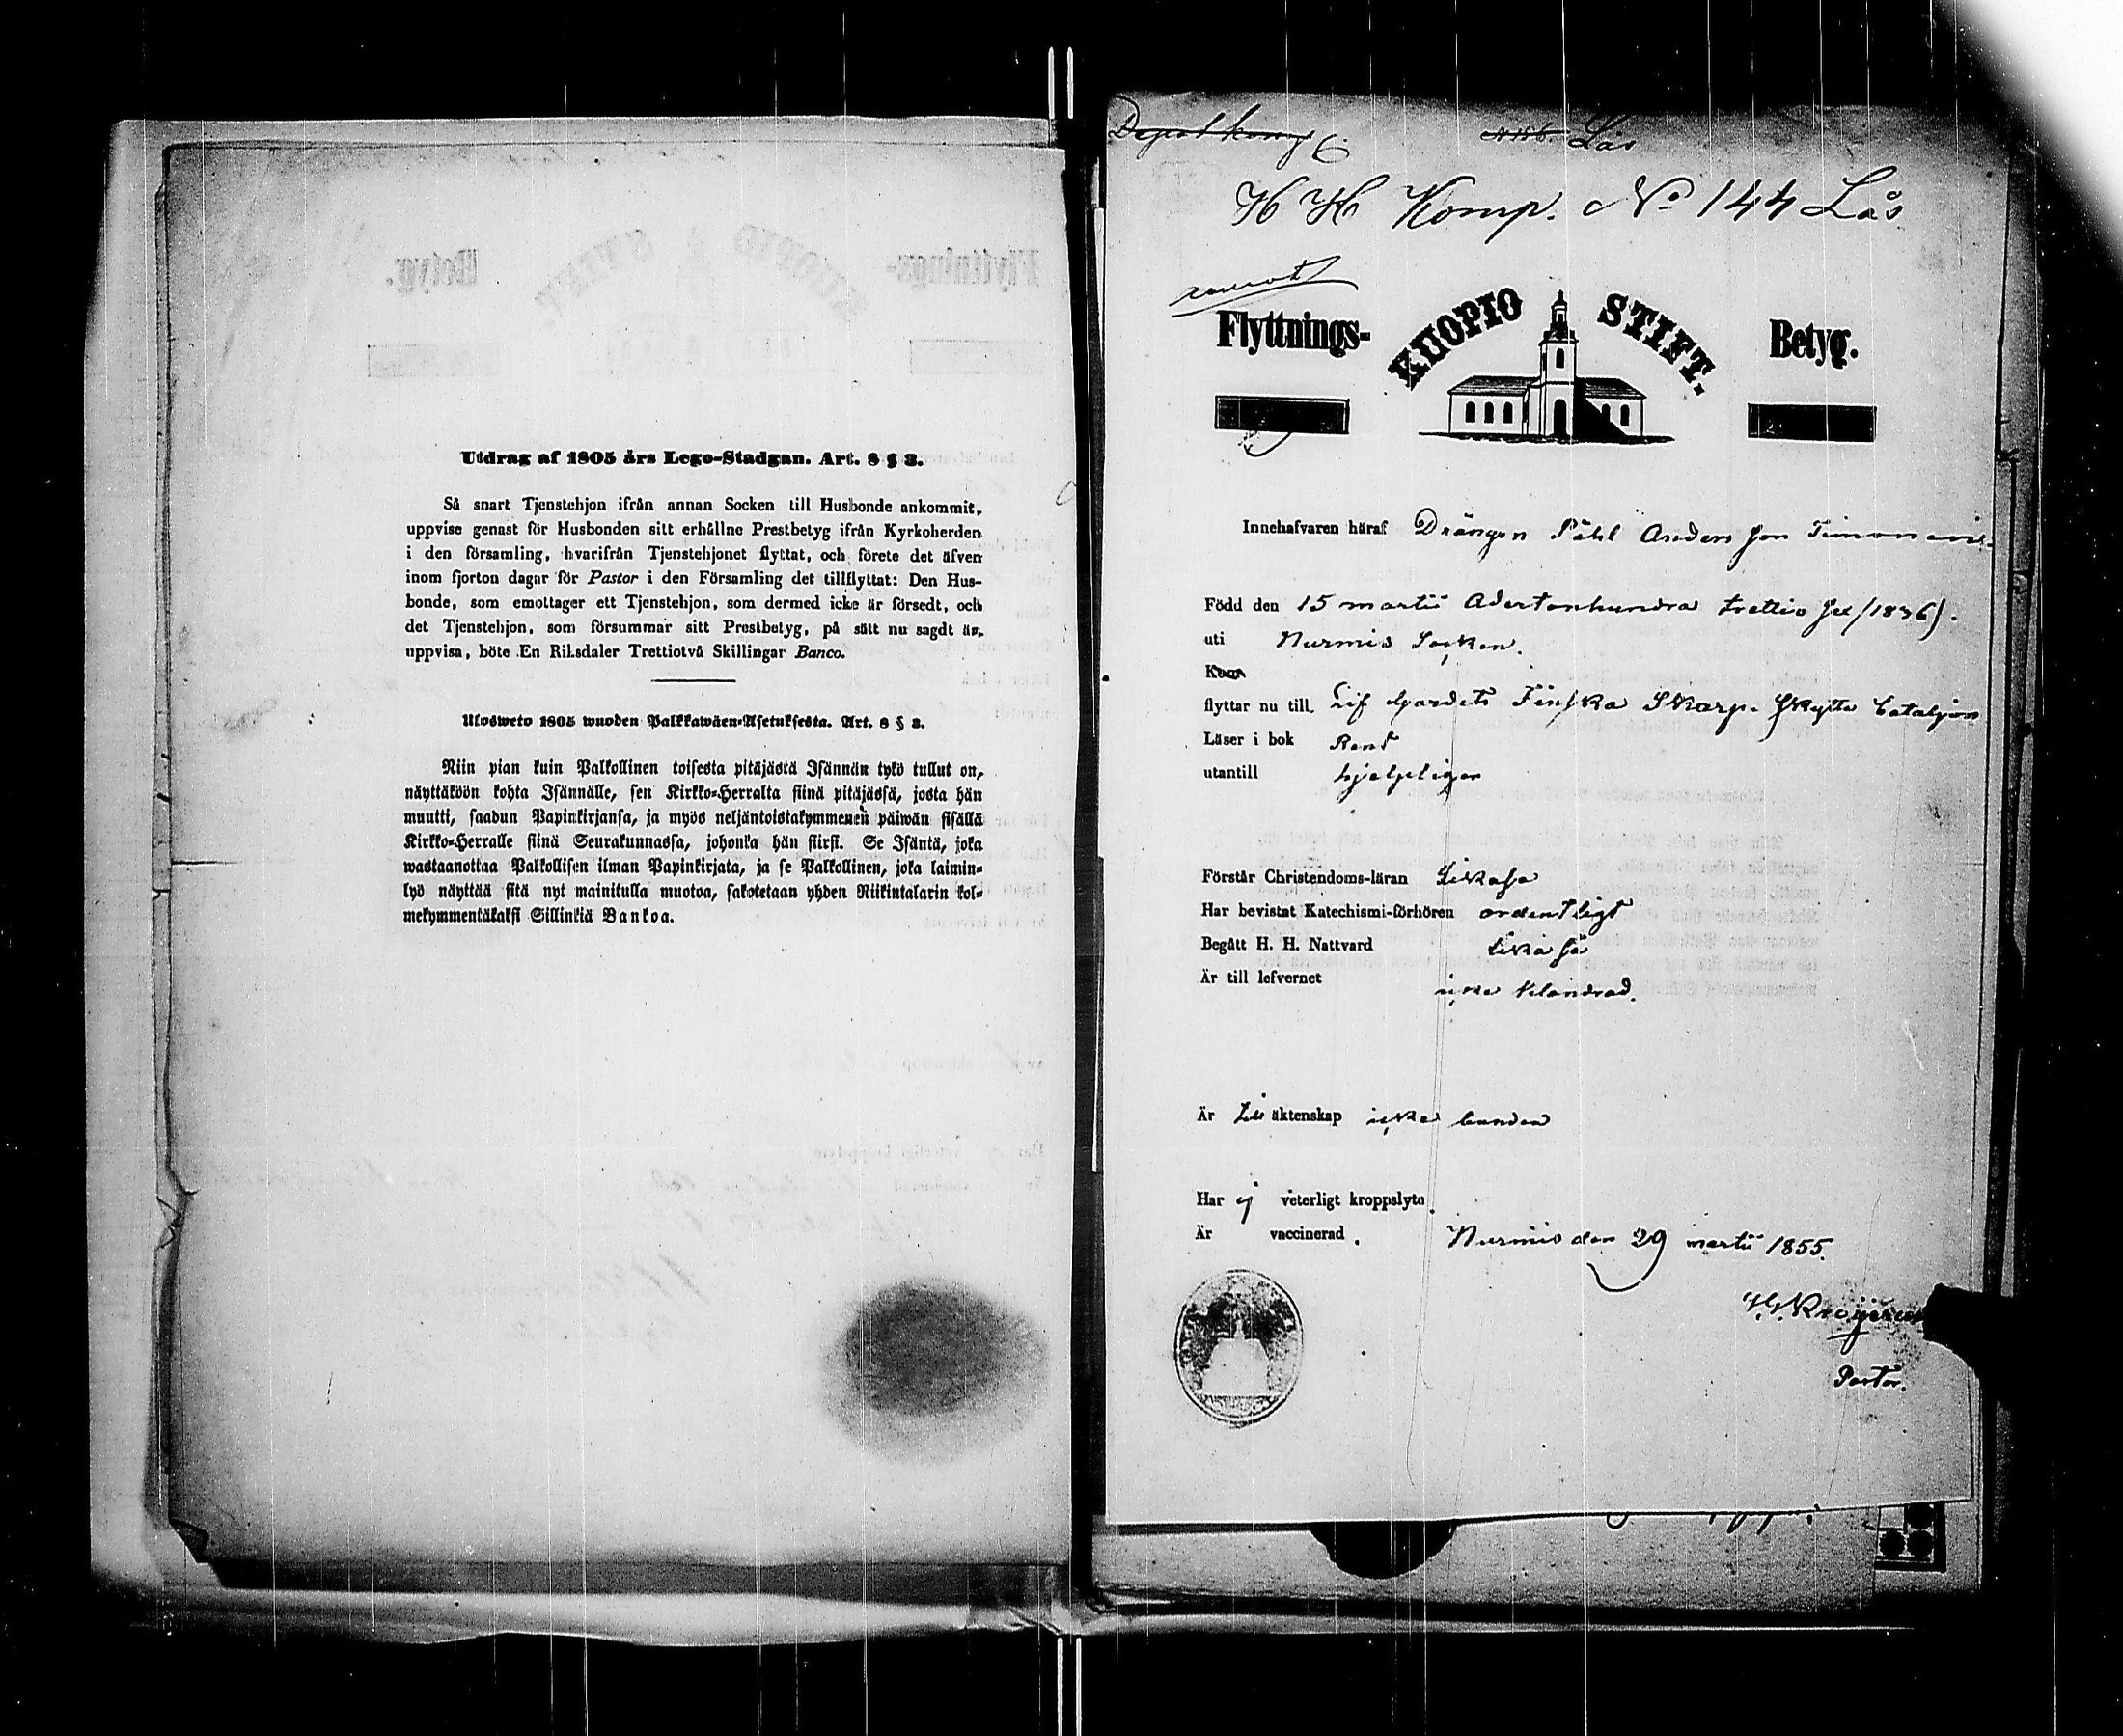 Utdrag af 1805 års Lego-Stadgan. Art. 8 § 3.
Så snart Tjenstehjon ifrån annan Socken till Husbonde ankommit,
uppvise genast för Husbonden sitt erhållne Prestbetyg ifrån Kyrkoherden
i den församling, hvarifrån Tjenstehjonet flyttat, och förete det äfven
inom fjorton dagar för Pastor i den Församling det tillflyttat: Den Hus-
bonde, som emottager ett Tjenstehjon, som dermed icke är försedt, och
det Tjenstehjon, som försummar sitt Prestbetyg, på sätt nu sagdt är,
uppvisa, böte En Riksdaler Trettiotvå Skillingar Banco.
Ulosweto 1805 wuoden Palkkawäen-Asetuksesta. Art. 8 § 3.
Niin pian kuin Palkollinen toisesta pitäjästä Isännän tykö tullut on,
näyttäköön kohta Isännälle, sen Kirkko-Herralta siinä pitäjässä, josta hän
muutti, saadun Papinkirjansa, ja myös neljäntoistakymmenen päiwän sisällä
Kirkko-Herralle siinä Seurakunnassa, johonka hän siirsi. Se Isäntä, joka
wastaanottaa Palkollisen ilman Papinkirjata, ja se Palkollinen, joka laimin-
lyö näyttää sitä nyt mainitulla muotoa, sakotetaan yhden Riikintalarin kol-
mekymmentäkaksi Sillinkiä Bankoa.
Depot komp 6 Lås
H H Komp. No 144 Lås
Flyttnings- KUOPIO STIFT. Betyg.
Innehafvaren häraf Drängen Påhl Andersson Timonain
Född den 15 martii Adertonhundra trettio sex (1836).
uti Nurmis Socken.
Kom
flyttar nu till. Lif Gardets Finska Skarp. Skytte Bataljon
Läser i bok Rent
utantill hjelpligen
Förstår Christendoms-läran Likaså
Har bevistat Katechismi-förhören ordentligt
Begått H. H. Nattvard Likaså
Är till lefvernet icke klandrad.
Är till äktenskap icke bunden
Har ej veterligt kroppslyte.
Är vaccinerad. Nurmis den 29 martii 1855.
Pastor.